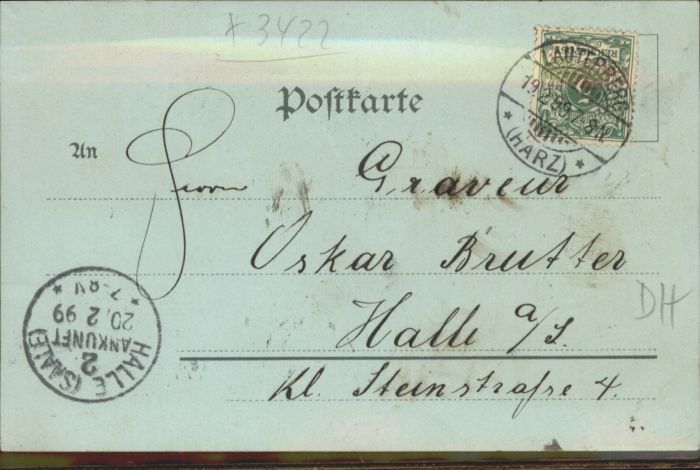 * 3422
Postkarte
LAUTERBERG
19 2 99 7-8N
* (HARZ) *
An
Herrn Graveur
Oskar Brutter
Halle a/S.
Kl. Steinstraße 4.
DH
HALLE (SAALE)
2
ANKUNFT
20. 2 99
* 7-8V *